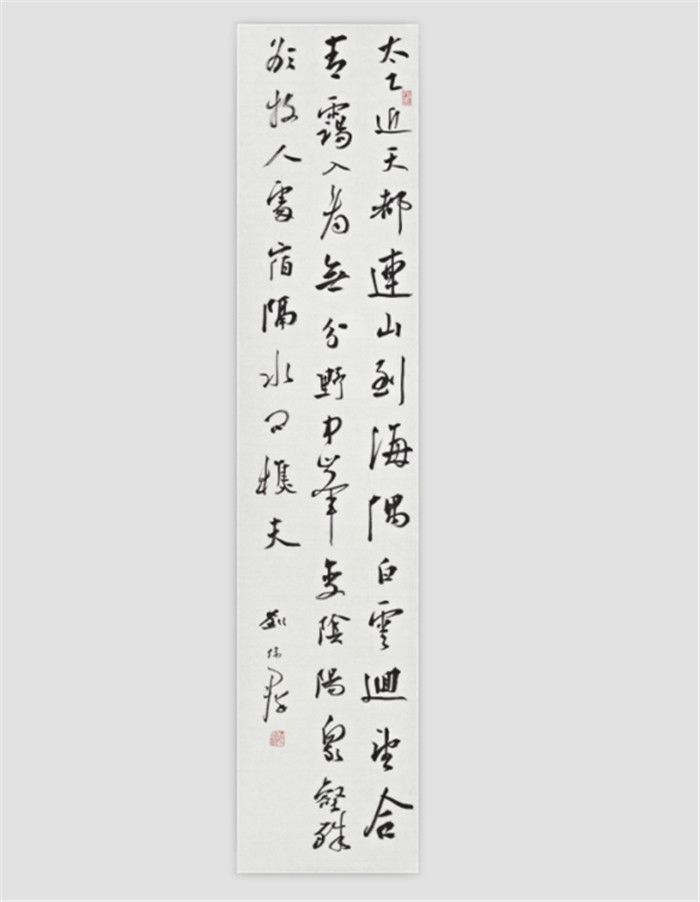 太乙近天都連山到海隅白雲迴望合
青靄入看無分野中峯變陰陽眾壑殊
欲投人處宿隔水問樵夫
劉